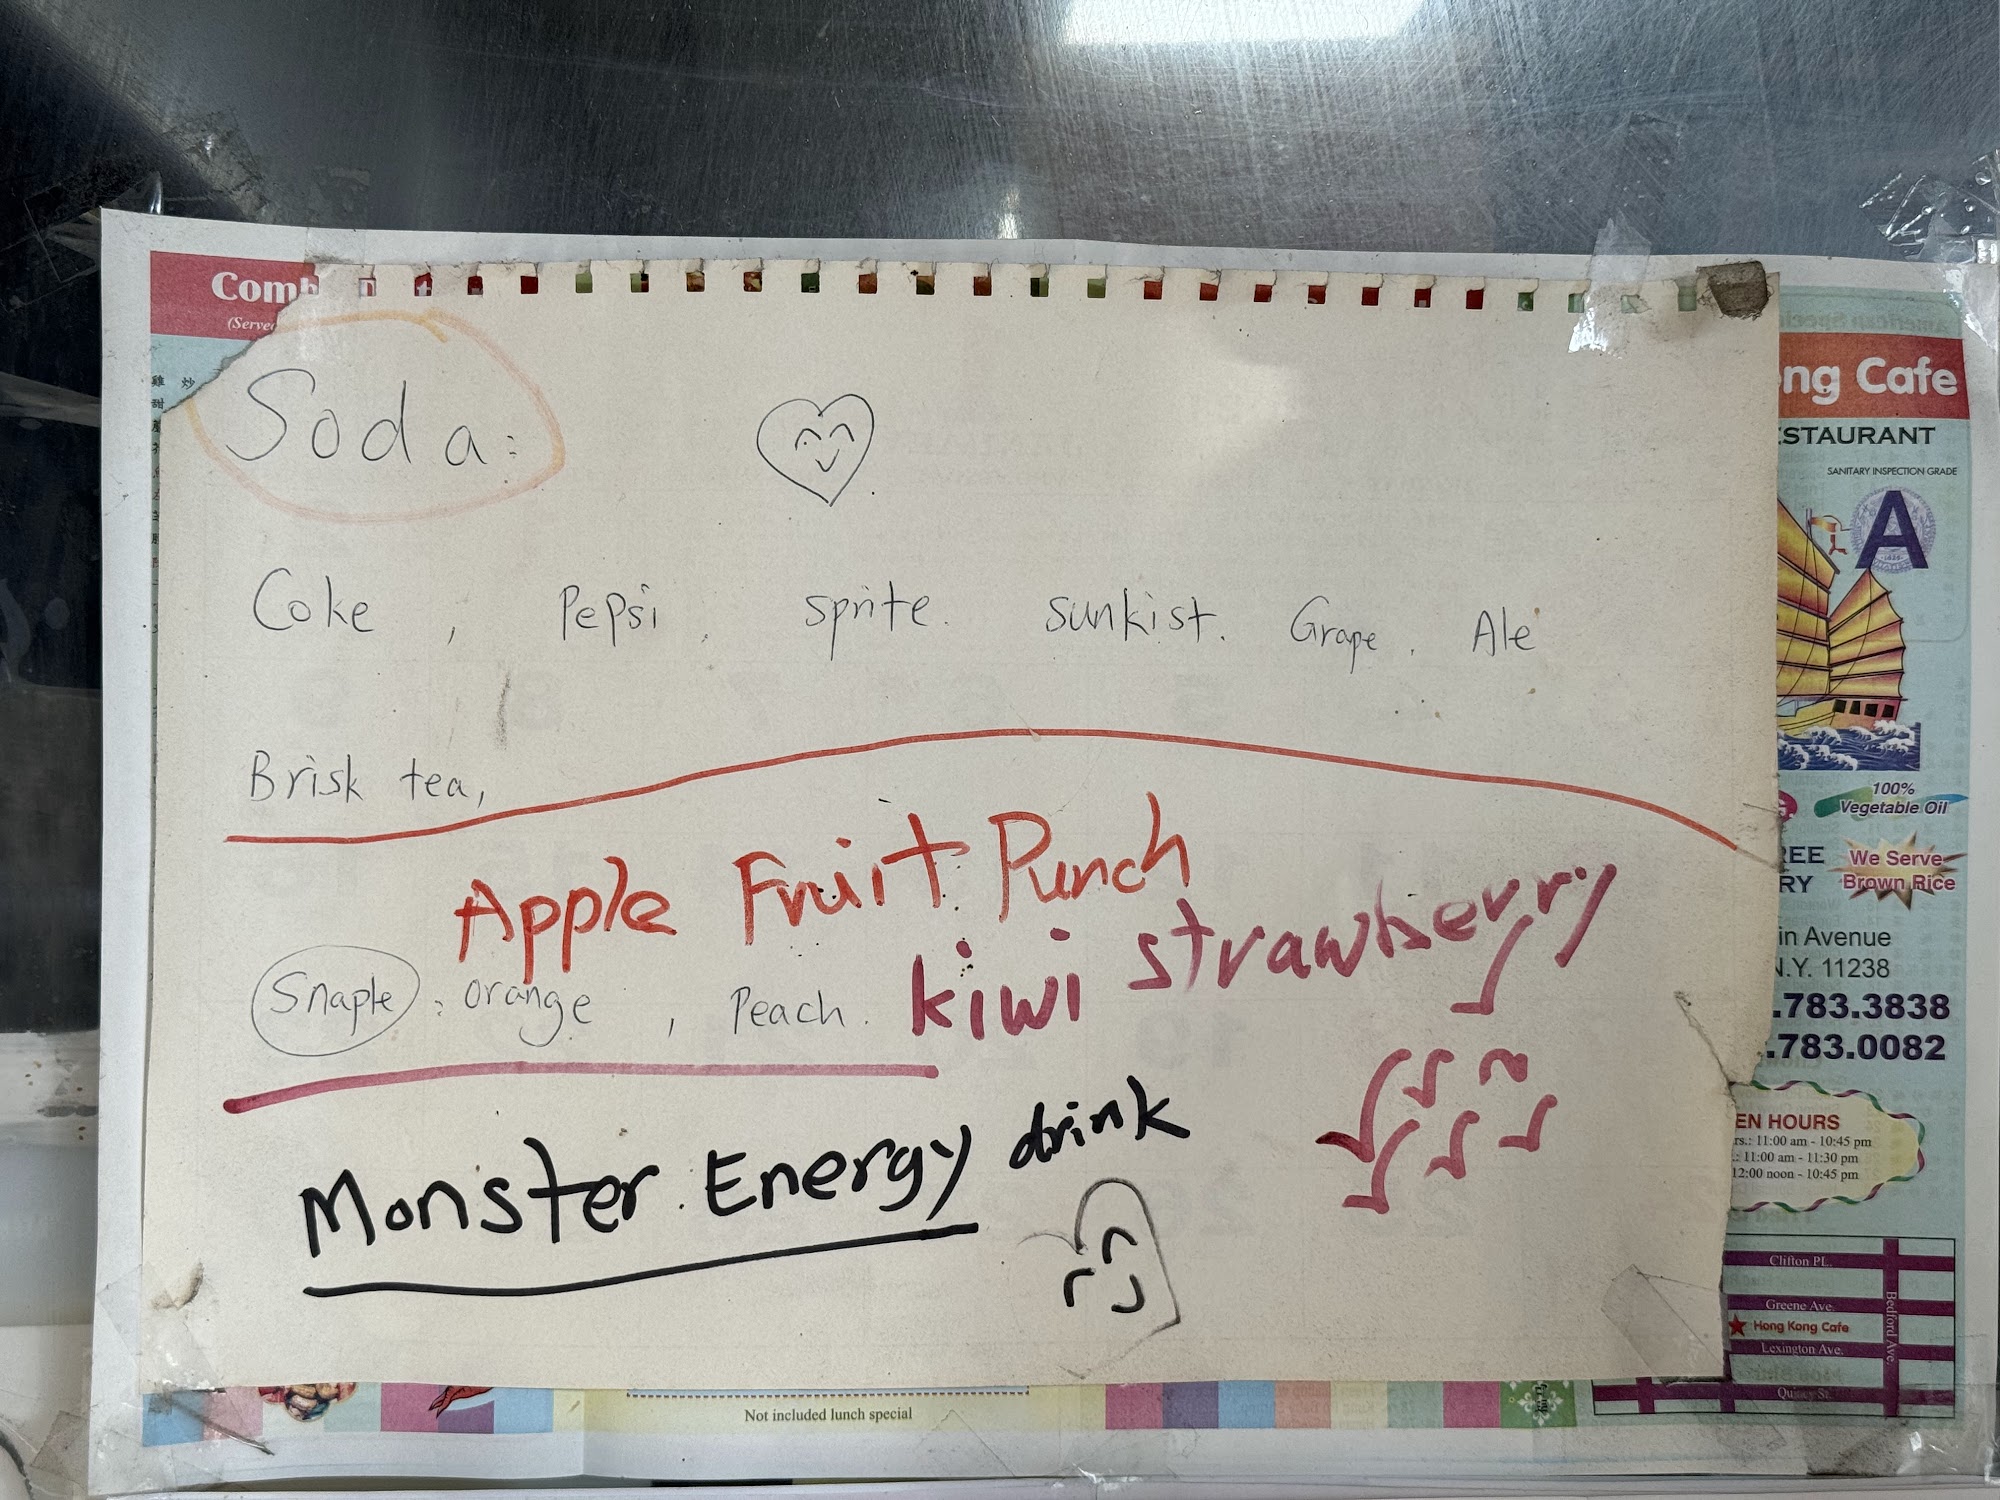 Soda:
Coke , Pepsi , sprite. sunkist. Grape. Ale
Brisk tea,
Apple Fruit Punch
kiwi strawberry
Snaple : orange , Peach.
Monster Energy drink
(Served
ng Cafe
STAURANT
SANITARY INSPECTION GRADE
A
100%
Vegetable Oil
REE
RY
We Serve
Brown Rice
in Avenue
N.Y. 11238
.783.3838
.783.0082
EN HOURS
rs.: 11:00 am - 10:45 pm
.: 11:00 am - 11:30 pm
12:00 noon - 10:45 pm
Clifton PL.
Greene Ave.
Hong Kong Cafe
Lexington Ave.
Quincy St.
Bedford Ave.
Not included lunch special